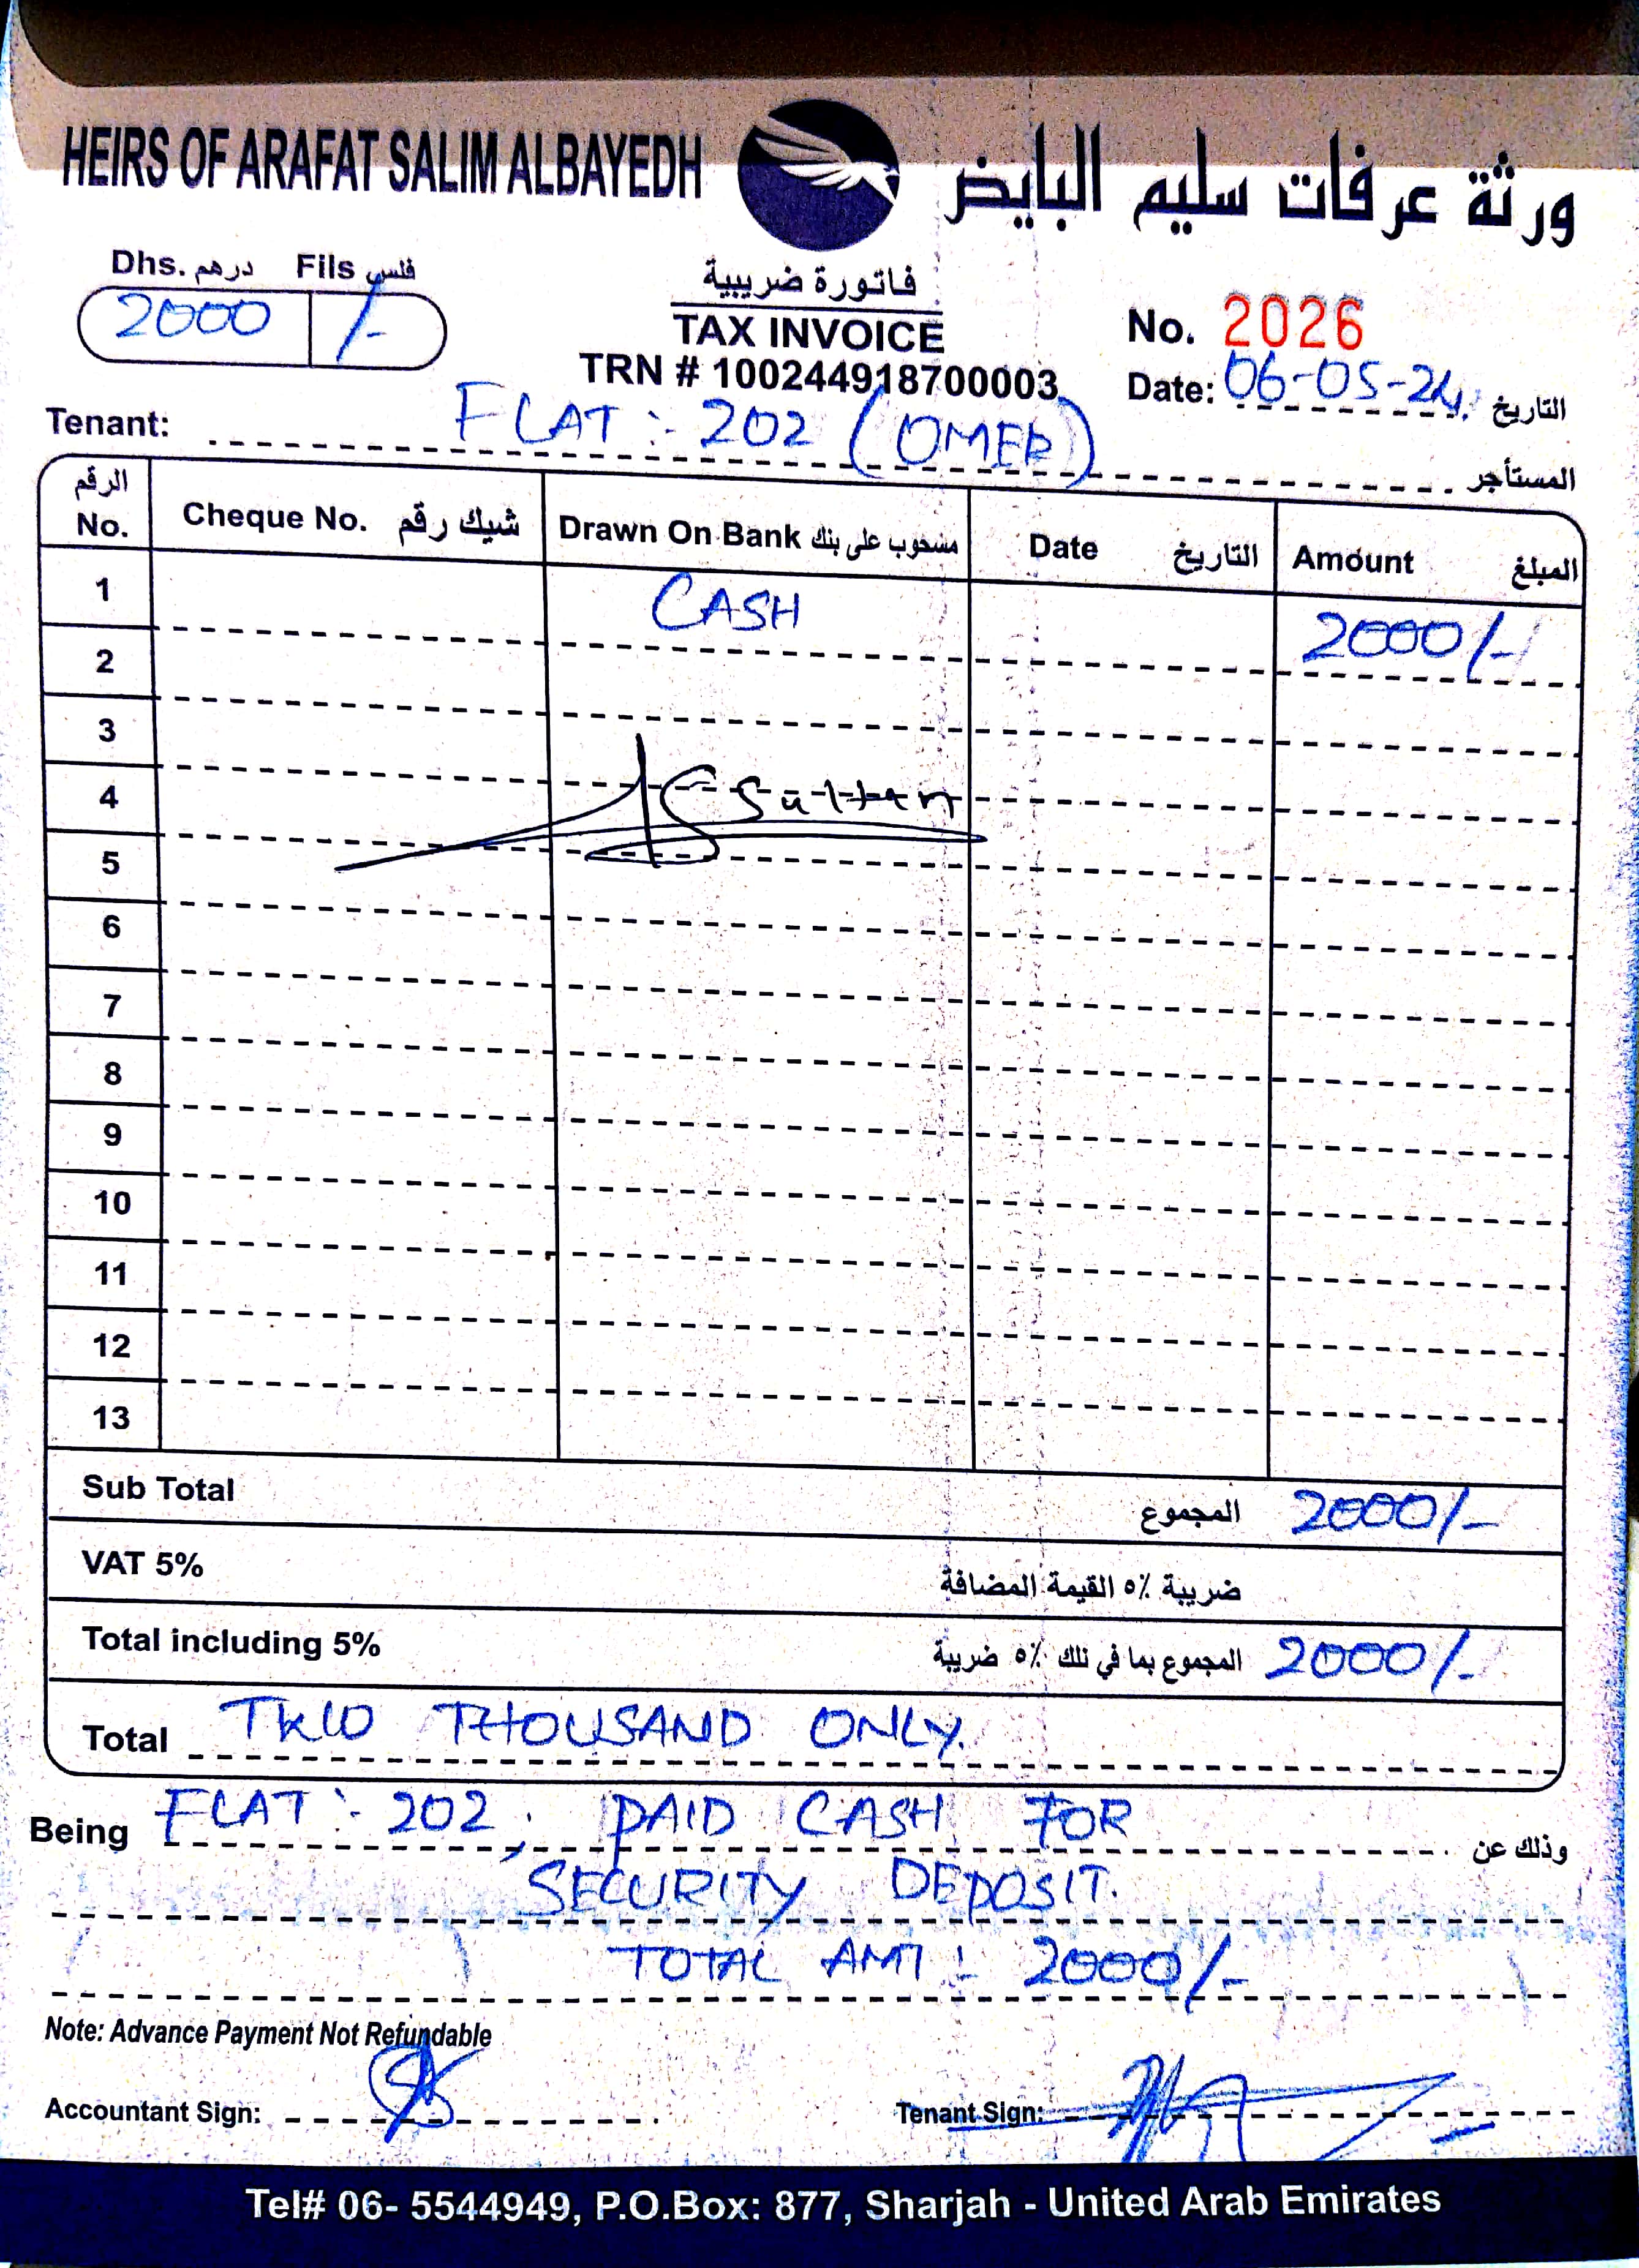 HEIRS OF ARAFAT SALIM ALBAYEDH
ورثة عرفات سليم البايض
Dhs. درهم Fils فلس
2000 /-
فاتورة ضريبية
TAX INVOICE
TRN # 100244918700003
No. 2026
Date: 06-05-24. التاريخ
Tenant: FLAT :- 202 (OMER) المستأجر
الرقم No. Cheque No. شيك رقم Drawn On Bank مسحوب على بنك Date التاريخ Amount المبلغ
1 CASH 2000/-
2
3
4 Sultan
5
6
7
8
9
10
11
12
13
Sub Total المجموع 2000/-
VAT 5% ضريبة ٥٪ القيمة المضافة
Total including 5% المجموع بما في ذلك ٥٪ ضريبة 2000/-
Total TWO THOUSAND ONLY.
Being FLAT :- 202, PAID CASH FOR وذلك عن
SECURITY DEPOSIT.
TOTAL AMT :- 2000/-
Note: Advance Payment Not Refundable
Accountant Sign: Tenant Sign:
Tel# 06- 5544949, P.O.Box: 877, Sharjah - United Arab Emirates